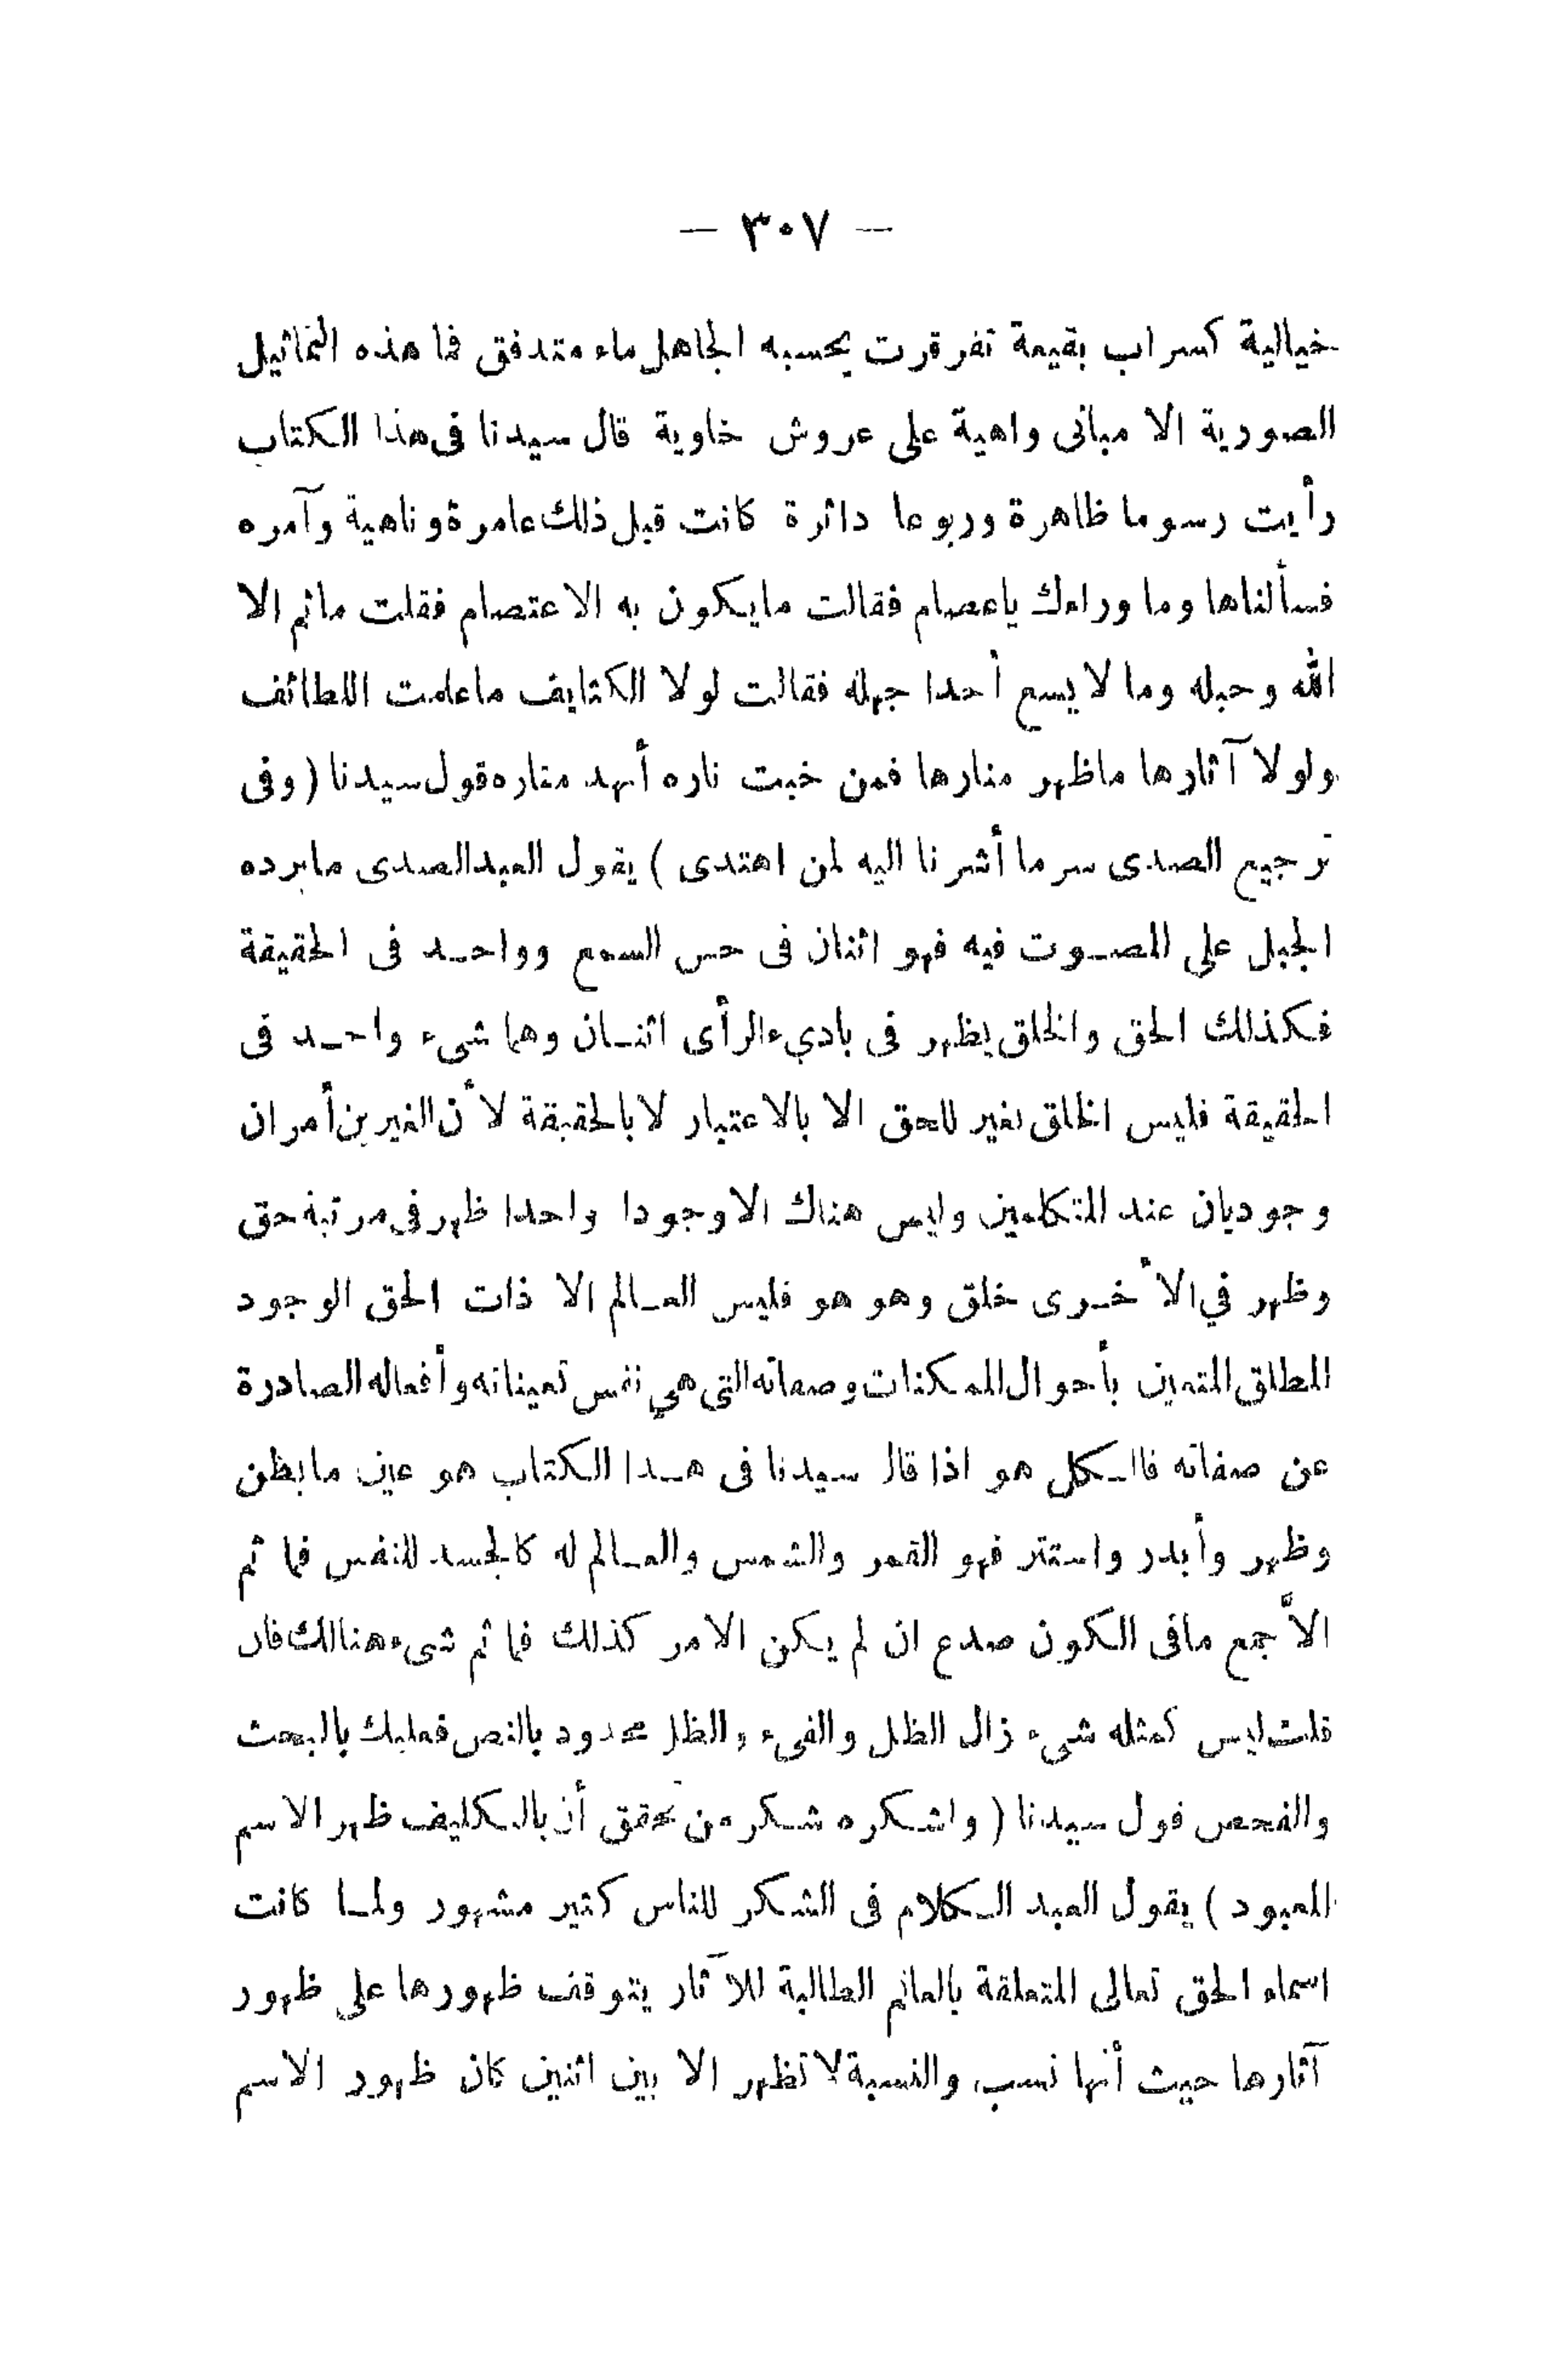 — ٣٠٧ —
خيالية كسراب بقيعة تفرقرت يحسبه الجاهل ماء متدفق فما هذه التماثيل
الصورية الا مبانى واهية على عروش خاوية قال سيدنا فى هذا الكتاب
رأيت رسوما ظاهرة وربوعا داثرة كانت قبل ذلك عامرة وناهية وآمره
فسألناها وما وراءك ياعصام فقالت مايكون به الاعتصام فقلت ماثم الا
الله وحبله وما لا يسع أحدا جهله فقالت لولا الكثايف ماعلمت اللطائف
ولولا آثارها ماظهر منارها فمن خبت ناره أنهد مناره قول سيدنا (وفى
ترجيع الصدى سر ما أشرنا اليه لمن اهتدى) يقول العبد الصدى مايرده
الجبل على المصوت فيه فهو اثنان فى حس السمع وواحد فى الحقيقة
فكذلك الحق والخلق يظهر فى بادىء الرأى اثنان وهما شىء واحد فى
الحقيقة فليس الخلق بغير للحق الا بالاعتبار لا بالحقيقة لأن الغيرين أمران
وجوديان عند المتكلمين وليس هناك الا وجودا واحدا ظهر فى مرتبة حق
وظهر في الأخرى خلق وهو هو فليس العالم الا ذات الحق الوجود
المطلق المتعين بأحوال الممكنات وصفاته التى هي نفس تعيناته وأفعاله الصادرة
عن صفاته فالكل هو اذا قال سيدنا فى هذا الكتاب هو عين مابطن
وظهر وأبدر واستتر فهو القمر والشمس والعالم له كالجسد للنفس فما ثم
الاّ جمع مافى الكون صدع ان لم يكن الامر كذلك فما ثم شىء هنالك فان
قلت ليس كمثله شىء زال الظل والفىء والظل محدود بالنص فعليك بالبحث
والفحص قول سيدنا (واشكره شكر من تحقق أن بالتكليف ظهر الاسم
المعبود) يقول العبد الكلام فى الشكر للناس كثير مشهور ولما كانت
اسماء الحق تعالى المتعلقة بالعالم الطالبة للآثار يتوقف ظهورها على ظهور
آثارها حيث أنها نسب والنسبة لا تظهر الا بين اثنين كان ظهور الاسم